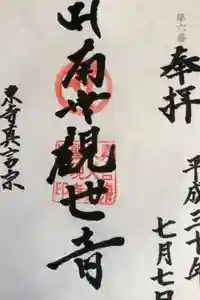 第六番
奉拝
平成三十年
七月七日
南 観世音
東寺真言宗